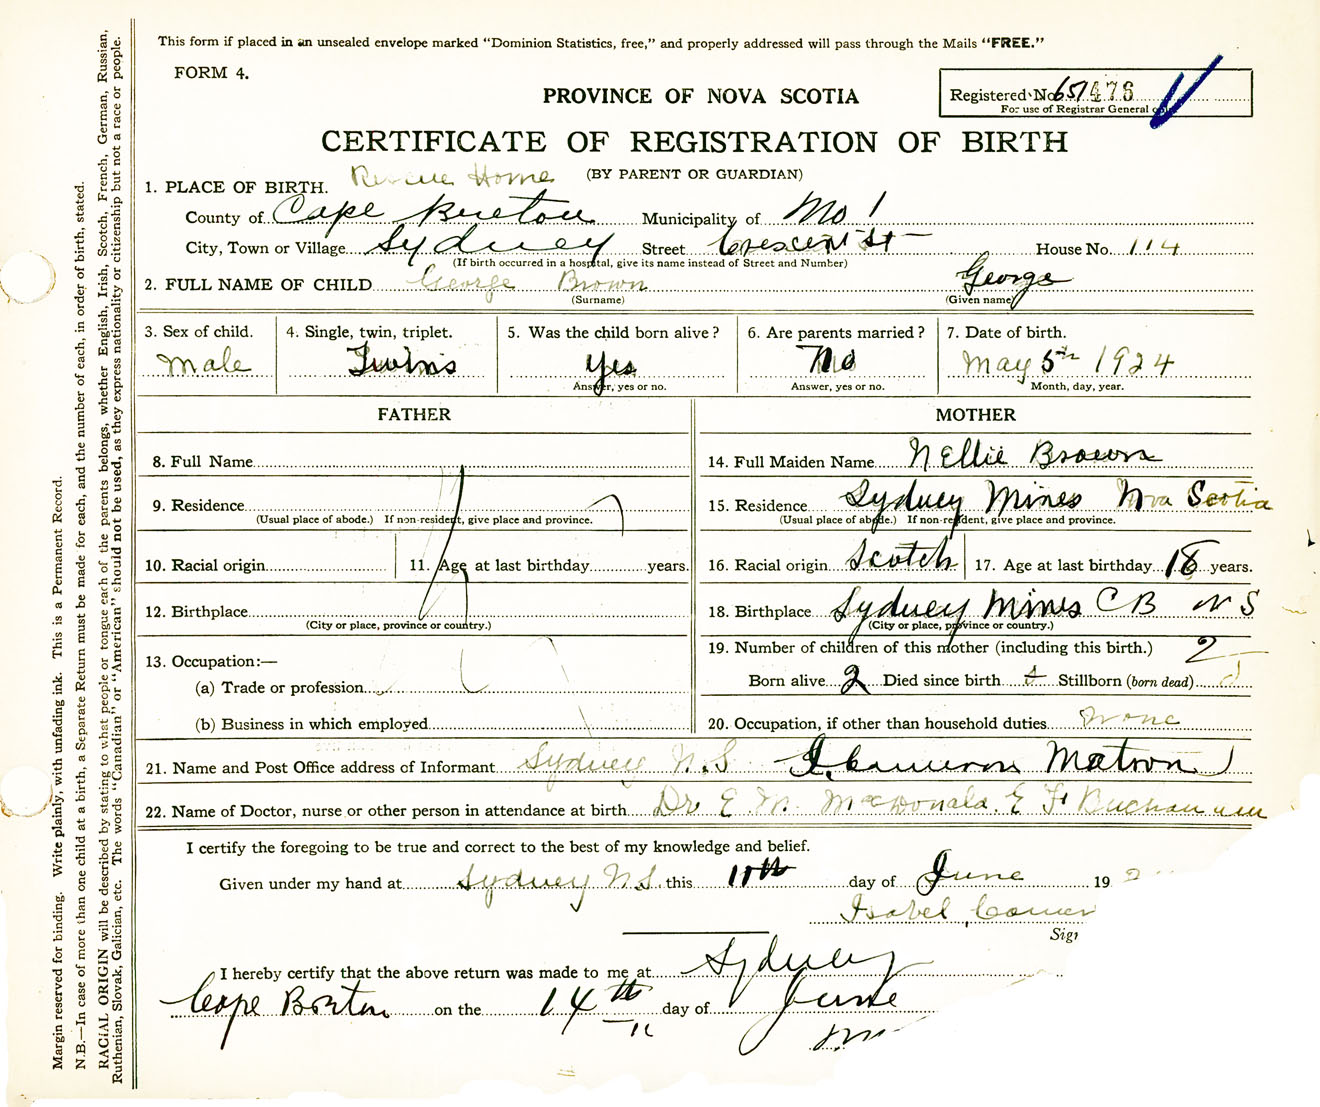 This form if placed in an unsealed envelope marked "Dominion Statistics, free," and properly addressed will pass through the Mails "FREE."
FORM 4.
Registered No. 651476
For use of Registrar General
PROVINCE OF NOVA SCOTIA
CERTIFICATE OF REGISTRATION OF BIRTH
Rescue Home (BY PARENT OR GUARDIAN)
1. PLACE OF BIRTH.
County of Cape Breton Municipality of No 1
City, Town or Village Sydney Street Crescent St House No. 114
(If birth occurred in a hospital, give its name instead of Street and Number)
2. FULL NAME OF CHILD George Brown George
(Surname) (Given name)
3. Sex of child. 4. Single, twin, triplet. 5. Was the child born alive? 6. Are parents married? 7. Date of birth.
Male Twins Yes No May 5th 1924
Answer, yes or no. Answer, yes or no. Month, day, year.
FATHER MOTHER
8. Full Name 14. Full Maiden Name Nellie Brown
9. Residence 15. Residence Sydney Mines Nova Scotia
(Usual place of abode.) If non-resident, give place and province. (Usual place of abode.) If non-resident, give place and province.
10. Racial origin 11. Age at last birthday years. 16. Racial origin Scotch 17. Age at last birthday 18 years.
12. Birthplace 18. Birthplace Sydney Mines C B N S
(City or place, province or country.) (City or place, province or country.)
13. Occupation:— 19. Number of children of this mother (including this birth.) 2
(a) Trade or profession Born alive 2 Died since birth Stillborn (born dead)
(b) Business in which employed 20. Occupation, if other than household duties None
21. Name and Post Office address of Informant Sydney N.S I. Cameron Matron
22. Name of Doctor, nurse or other person in attendance at birth Dr E M McDonald. E F Buchanan
I certify the foregoing to be true and correct to the best of my knowledge and belief.
Given under my hand at Sydney N.S. this 11th day of June 192
Isabel Camer
Sig
I hereby certify that the above return was made to me at Sydney
Cape Breton on the 14th day of June
Margin reserved for binding. Write plainly, with unfading ink. This is a Permanent Record.
N.B.—In case of more than one child at a birth, a Separate Return must be made for each, and the number of each, in order of birth, stated.
RACIAL ORIGIN will be described by stating to what people or tongue each of the parents belongs, whether English, Irish, Scotch, French, German, Russian,
Ruthenian, Slovak, Galician, etc. The words "Canadian" or "American" should not be used, as they express nationality or citizenship but not a race or people.